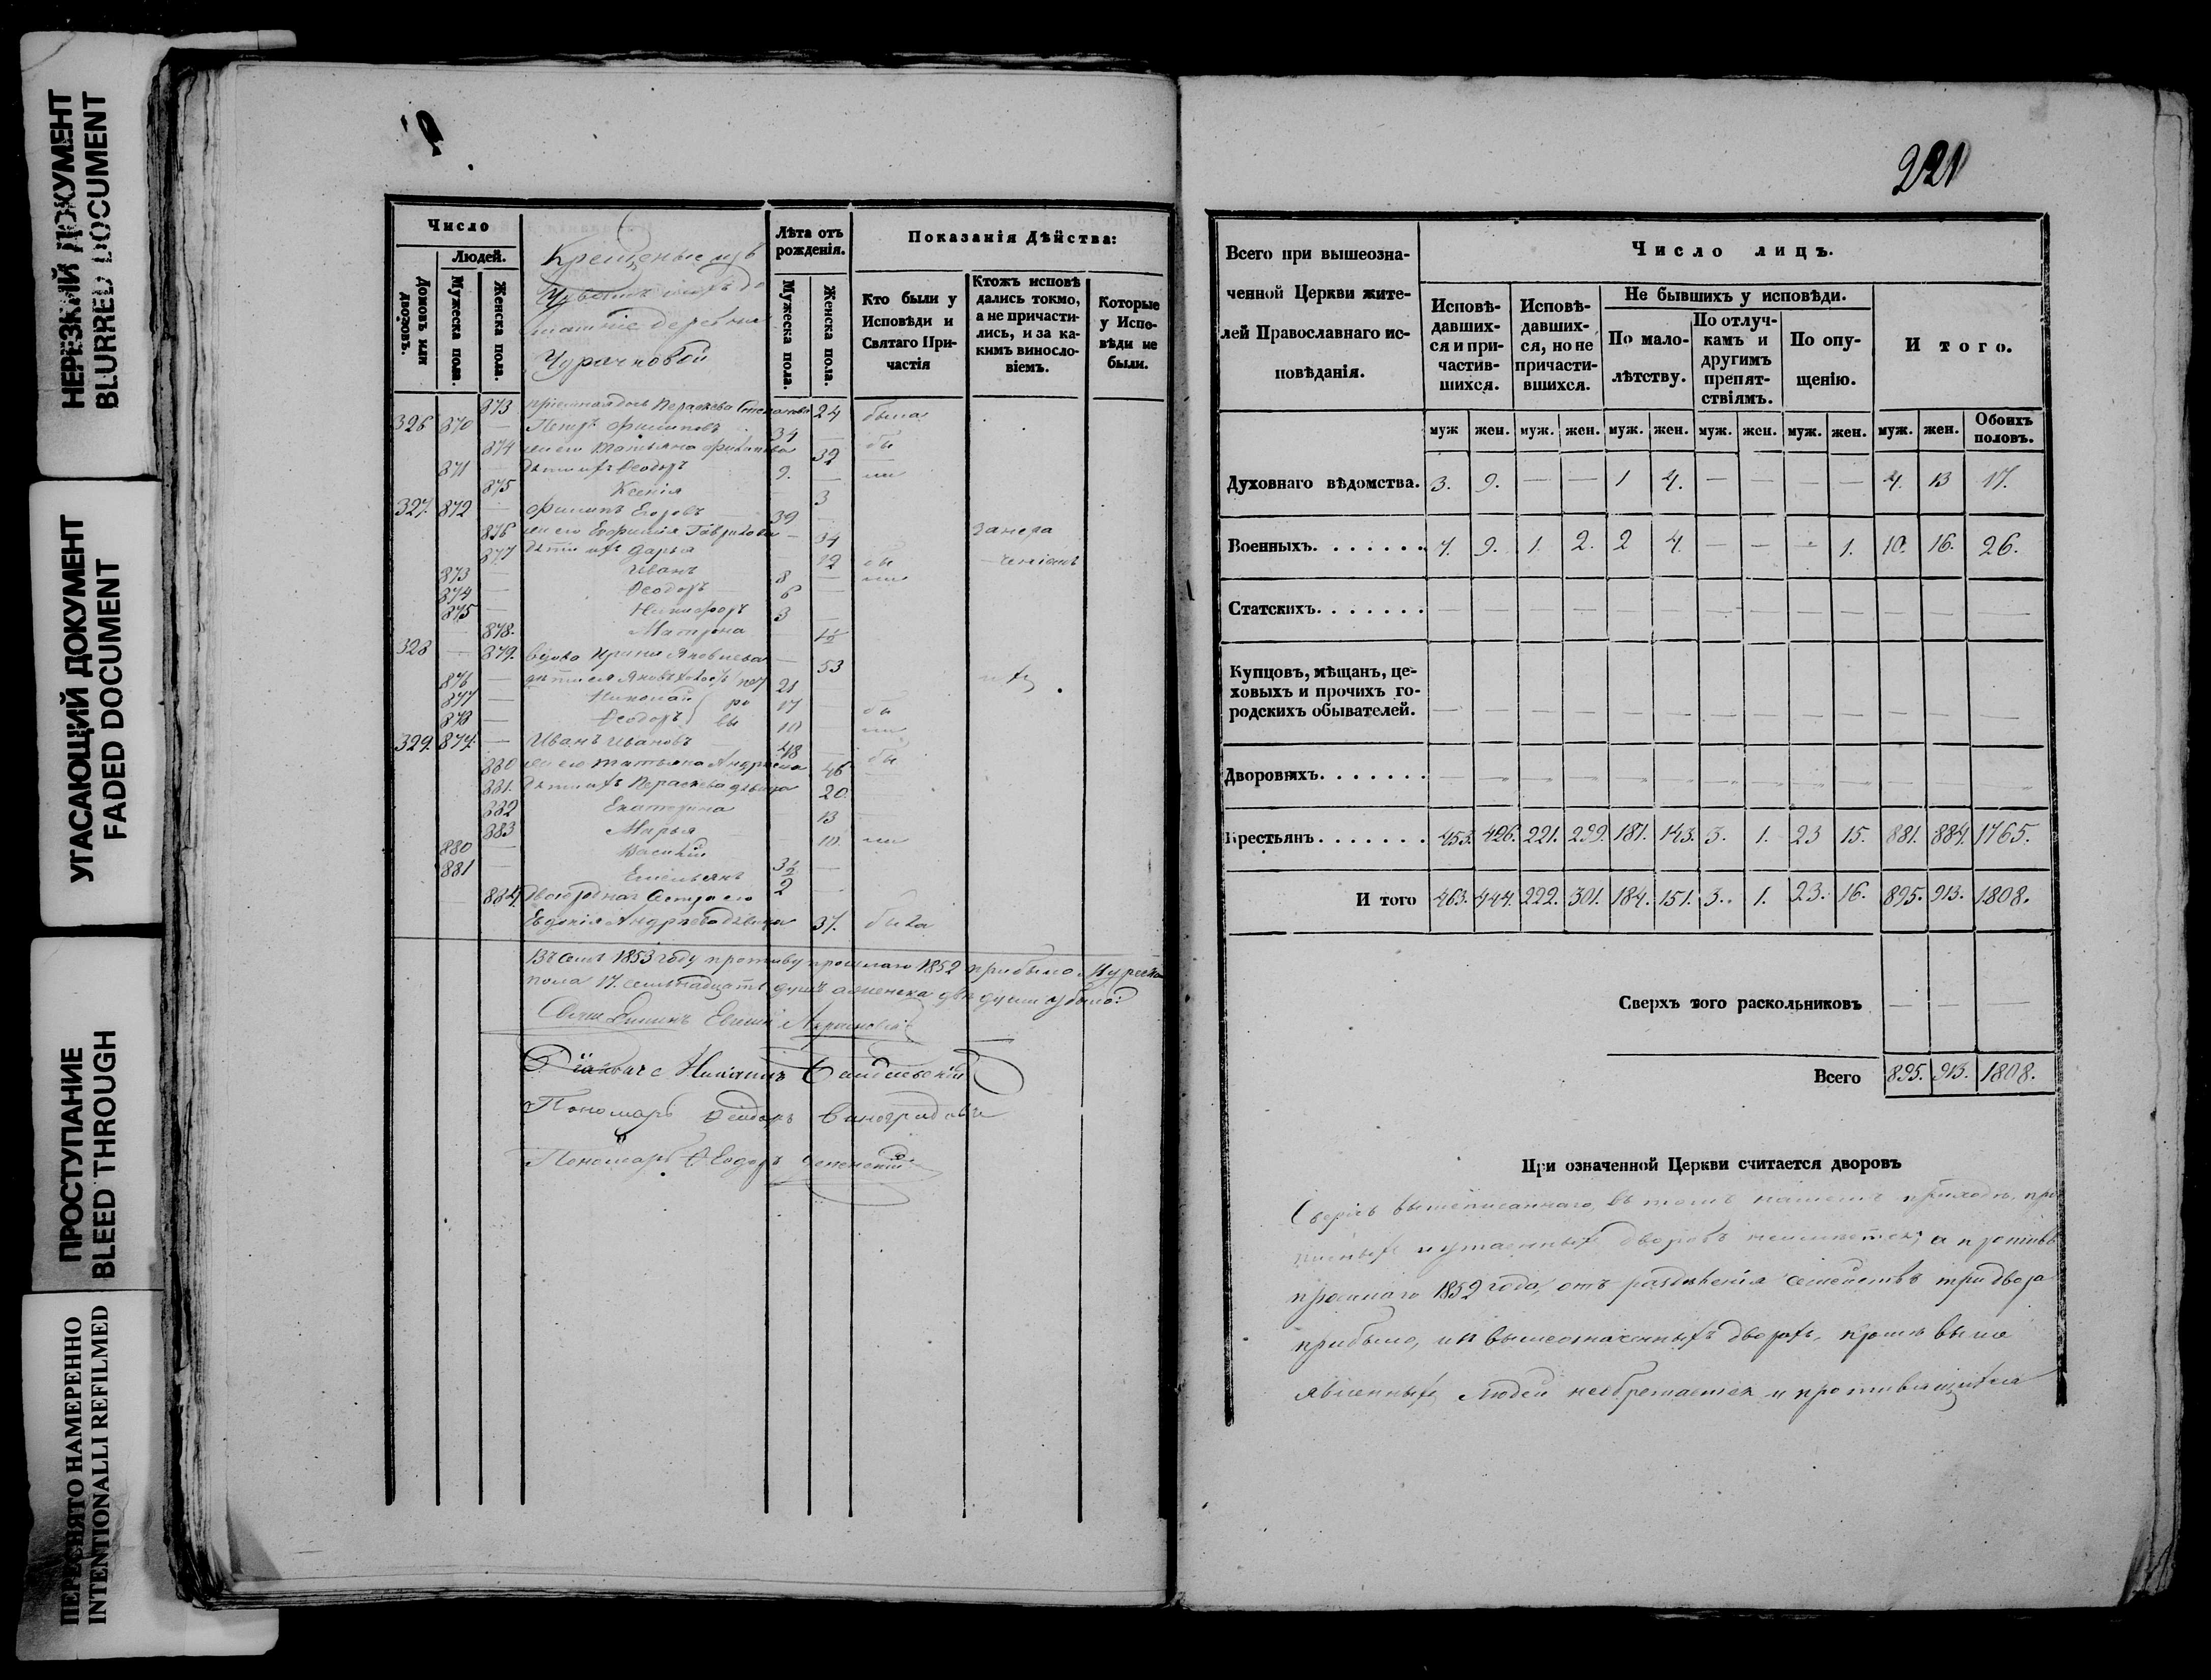 НЕРЕЗКИЙ ДОКУМЕНТ
BLURRED DOCUMENT
УГАСАЮЩИЙ ДОКУМЕНТ
FADED DOCUMENT
ПРОСТУПАНИЕ
BLEED THROUGH
ПЕРЕСНЯТО НАМЕРЕННО
INTENTIONALLI REFILMED
Число
Людей.
Домовъ или дворовъ.
Мужеска пола.
Женска пола.
Крещеные изъ
деревни
Чурачиковой
Лѣта отъ рожденія.
Мужеска пола.
Женска пола.
Показанія Дѣйства:
Кто были у Исповѣди и Святаго Причастія
Ктожъ исповѣдались токмо, а не причастились, и за какимъ винословіемъ.
Которые у Исповѣди не были.
873 дочь Параскева 24 была
326 870 — Петръ Филиповъ 34 —
874 жена его Татьяна Филипова 32 бы
871 — дѣти ихъ Ѳеодоръ 9. — ли
875 Ксенія 3
327. 872 — Филипъ Егоровъ 39 —
876 жена его Гаврилова — 34
877 дѣти ихъ Дарья 12 бы
873 — Иванъ 8 — ли
874 — Ѳеодоръ 6 —
875 — Никифоръ 3 —
— 878. Матрона 1½
328 — 879. вдова Ирина Яковлева — 53
876 — дѣти ея Яковъ 21
877 — Николай 17
878 — Ѳеодоръ 10 ли
329. 879. — Иванъ Ивановъ 48 —
880 жена его Татьяна Андреева 46 бы
881. дѣти ихъ Параскева дѣвица 20.
882 Екатерина 13
883 Марья 10. ли
880 — Василій 3½ —
881 — Емельянъ 2 —
884. двоюродная сестра его
Евдокія Андреева дѣвица 37. была
Въ семъ 1853 году противу прошлаго 1852 прибыло Мужеска
пола 17. семнадцать душъ а женска двѣ души убыло:
Пономарь Виноградовъ
Пономарь Ѳеодоръ
221
Всего при вышеозначенной Церкви жителей Православнаго исповѣданія.
Число лицъ.
Исповѣдавшихся и причастившихся.
Исповѣдавшихся, но не причастившихся.
Не бывшихъ у исповѣди.
По малолѣтству.
По отлучкамъ и другимъ препятствіямъ.
По опущенію.
Итого.
муж жен. муж. жен. муж. жен. муж. жен. муж. жен. муж. жен. Обоихъ половъ.
Духовнаго вѣдомства. 3. 9. — — 1 4. — — — — 4. 13 17.
Военныхъ. . . . . . . 7. 9. 1. 2. 2 4. — — — 1. 10. 16. 26.
Статскихъ. . . . . . . — — — — — — — — — — — — —
Купцовъ, мѣщанъ, цеховыхъ и прочихъ городскихъ обывателей. — — — — — — — — — — — — —
Дворовыхъ. . . . . . . — — — — — — — — — — — — —
Крестьянъ. . . . . . . 453. 426. 221. 299. 181. 143. 3. 1. 23 15. 881. 884. 1765.
Итого 463. 444. 222. 301. 184. 151. 3. 1. 23. 16. 895. 913. 1808.
Сверхъ того раскольниковъ — — —
Всего 895. 913. 1808.
При означенной Церкви считается дворовъ
Сверхъ вышеписаннаго, въ томъ нашемъ приходѣ,
и утаенныхъ дворовъ неимѣется; а противъ
прошлаго 1852 года, отъ раздѣленія семействъ три двора
прибыло, и въ вышеозначенныхъ дворахъ, кромѣ выше
явленныхъ людей необретается и противящихся